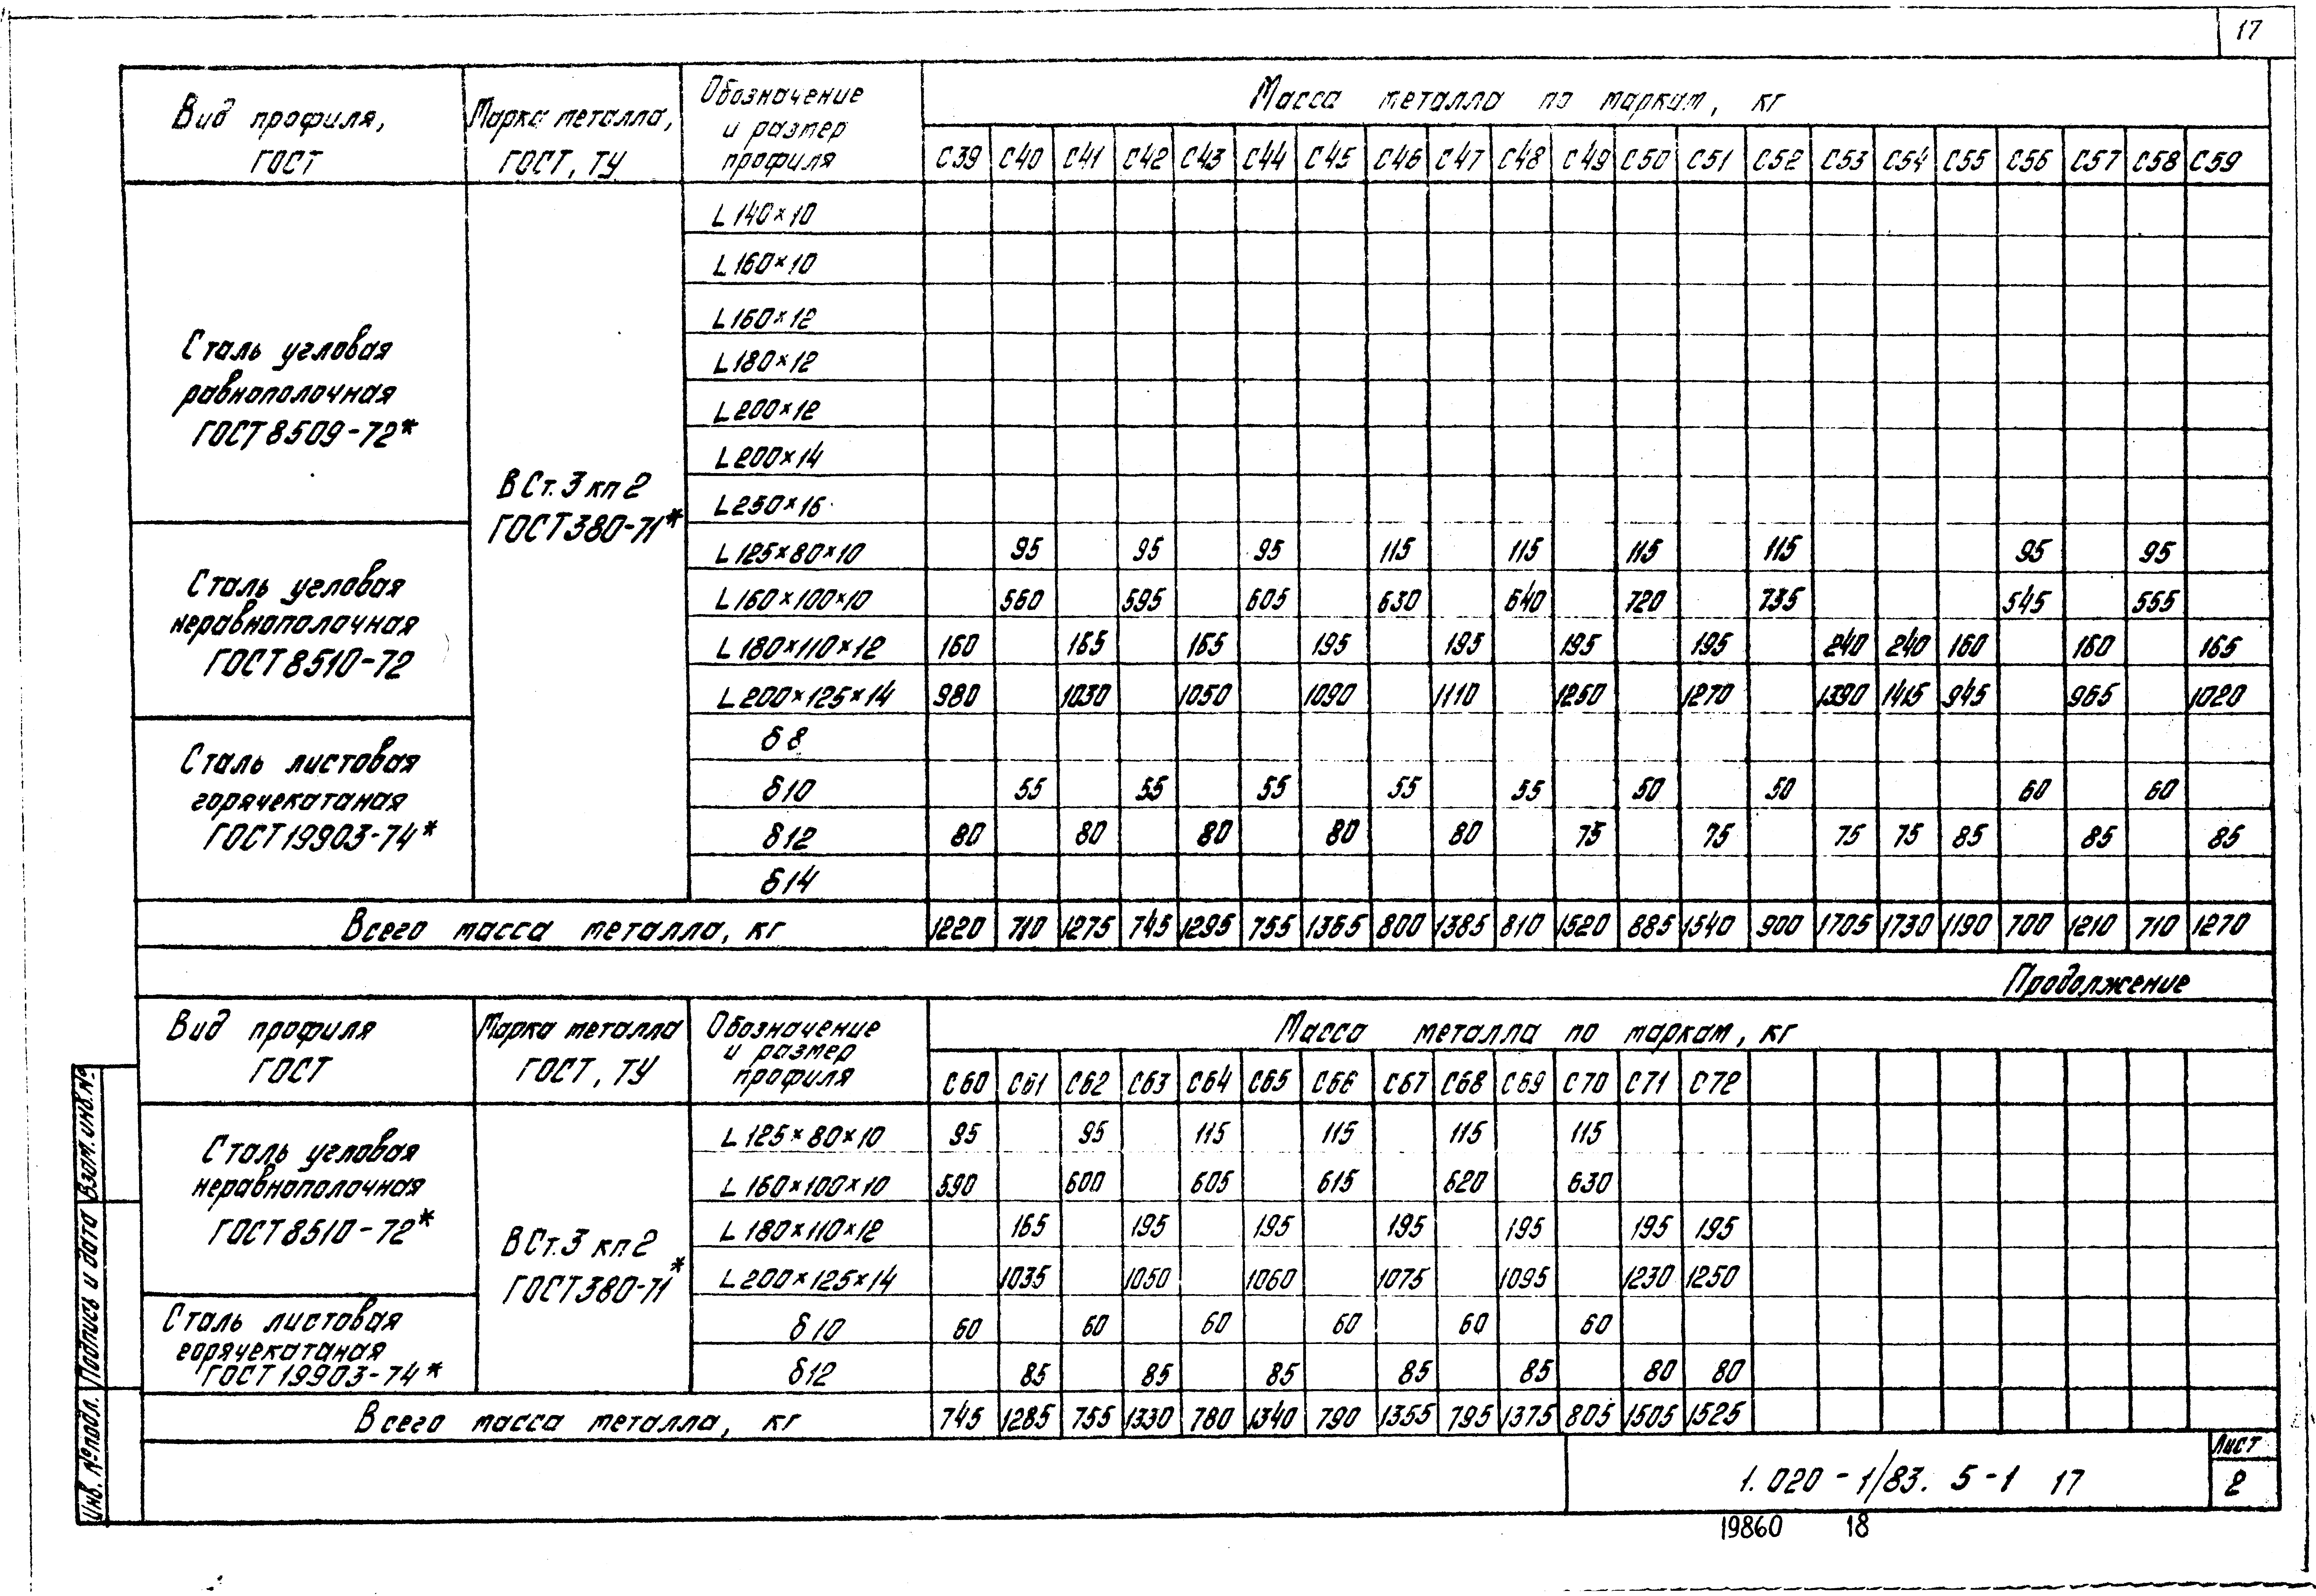 17
Вид профиля, ГОСТ | Марка металла, ГОСТ, ТУ | Обозначение и размер профиля | Масса металла по маркам, кг
С39 С40 С41 С42 С43 С44 С45 С46 С47 С48 С49 С50 С51 С52 С53 С54 С55 С56 С57 С58 С59
Сталь угловая
равнополочная
ГОСТ 8509-72*
ВСт.3 кп 2
ГОСТ 380-71*
L 140×10
L 160×10
L 160×12
L 180×12
L 200×12
L 200×14
L 250×16
Сталь угловая
неравнополочная
ГОСТ 8510-72
L 125×80×10 95 95 95 115 115 115 115 95 95
L 160×100×10 560 595 605 630 640 720 735 545 555
L 180×110×12 160 165 165 195 195 195 195 240 240 160 160 165
L 200×125×14 980 1030 1050 1090 1110 1250 1270 1390 1415 945 965 1020
Сталь листовая
горячекатаная
ГОСТ 19903-74*
δ 8
δ 10 55 55 55 55 55 50 50 60 60
δ 12 80 80 80 80 80 75 75 75 75 85 85 85
δ 14
Всего масса металла, кг 1220 710 1275 745 1295 755 1365 800 1385 810 1520 885 1540 900 1705 1730 1190 700 1210 710 1270
Продолжение
Вид профиля ГОСТ | Марка металла ГОСТ, ТУ | Обозначение и размер профиля | Масса металла по маркам, кг
С60 С61 С62 С63 С64 С65 С66 С67 С68 С69 С70 С71 С72
Сталь угловая
неравнополочная
ГОСТ 8510-72*
ВСт.3 кп 2
ГОСТ 380-71*
L 125×80×10 95 95 115 115 115 115
L 160×100×10 590 600 605 615 620 630
L 180×110×12 165 195 195 195 195 195 195
L 200×125×14 1035 1050 1060 1075 1095 1230 1250
Сталь листовая
горячекатаная
ГОСТ 19903-74*
δ 10 60 60 60 60 60 60
δ 12 85 85 85 85 85 80 80
Всего масса металла, кг 745 1285 755 1330 780 1340 790 1355 795 1375 805 1505 1525
Инв. № подл. Подпись и дата Взам. инв. №
1.020-1/83. 5-1 17
Лист
2
19860 18